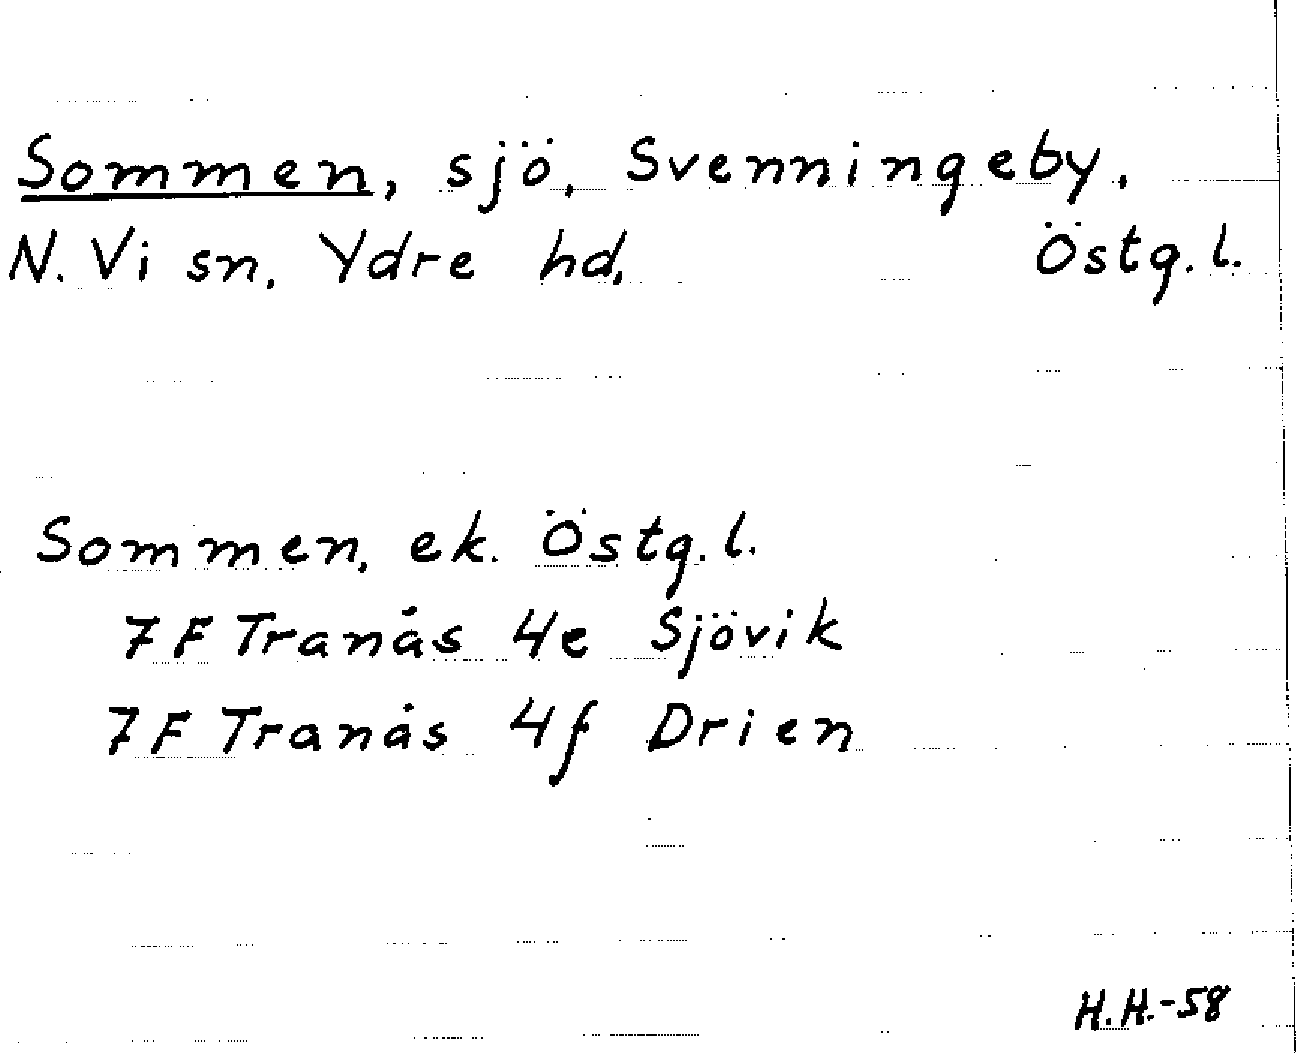 Sommen, sjö, Svenningeby,
N. Vi sn, Ydre hd, Östg. l.
Sommen, ek. Östg. l.
7F Tranås 4e Sjövik
7F Tranås 4f Drien
H.H.-58